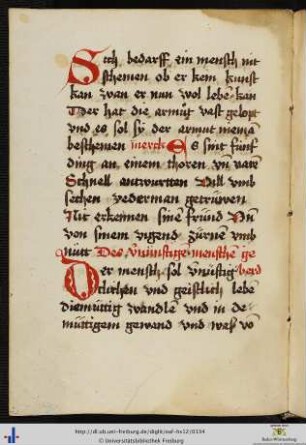 Sich bedarff ein mensch nit
schemen ob er kem kunst
kan wan er nun wol lebē kan
Der hat die armůt vast gelopt
vnd es sol sÿ der armut niema
beschemen merck Es sint fünf
ding an einem thoren vn
Schnell antwurtten Vill vmb
sechen yederman getrüwen
Nit erkennen sine fründ Vn̄
von sinem vigend zürnē vmb
nütt Des vnünstigē menschē ge
Der mensch sol vnüstig berd
tlichen und geistlich lebē
diemüttig wandlē vnd in de
müttigem gewand vnd wek vō
http://dl.ub.uni-freiburg.de/diglit/oaf-hs12/0154
© Universitätsbibliothek Freiburg
Baden-Württemberg